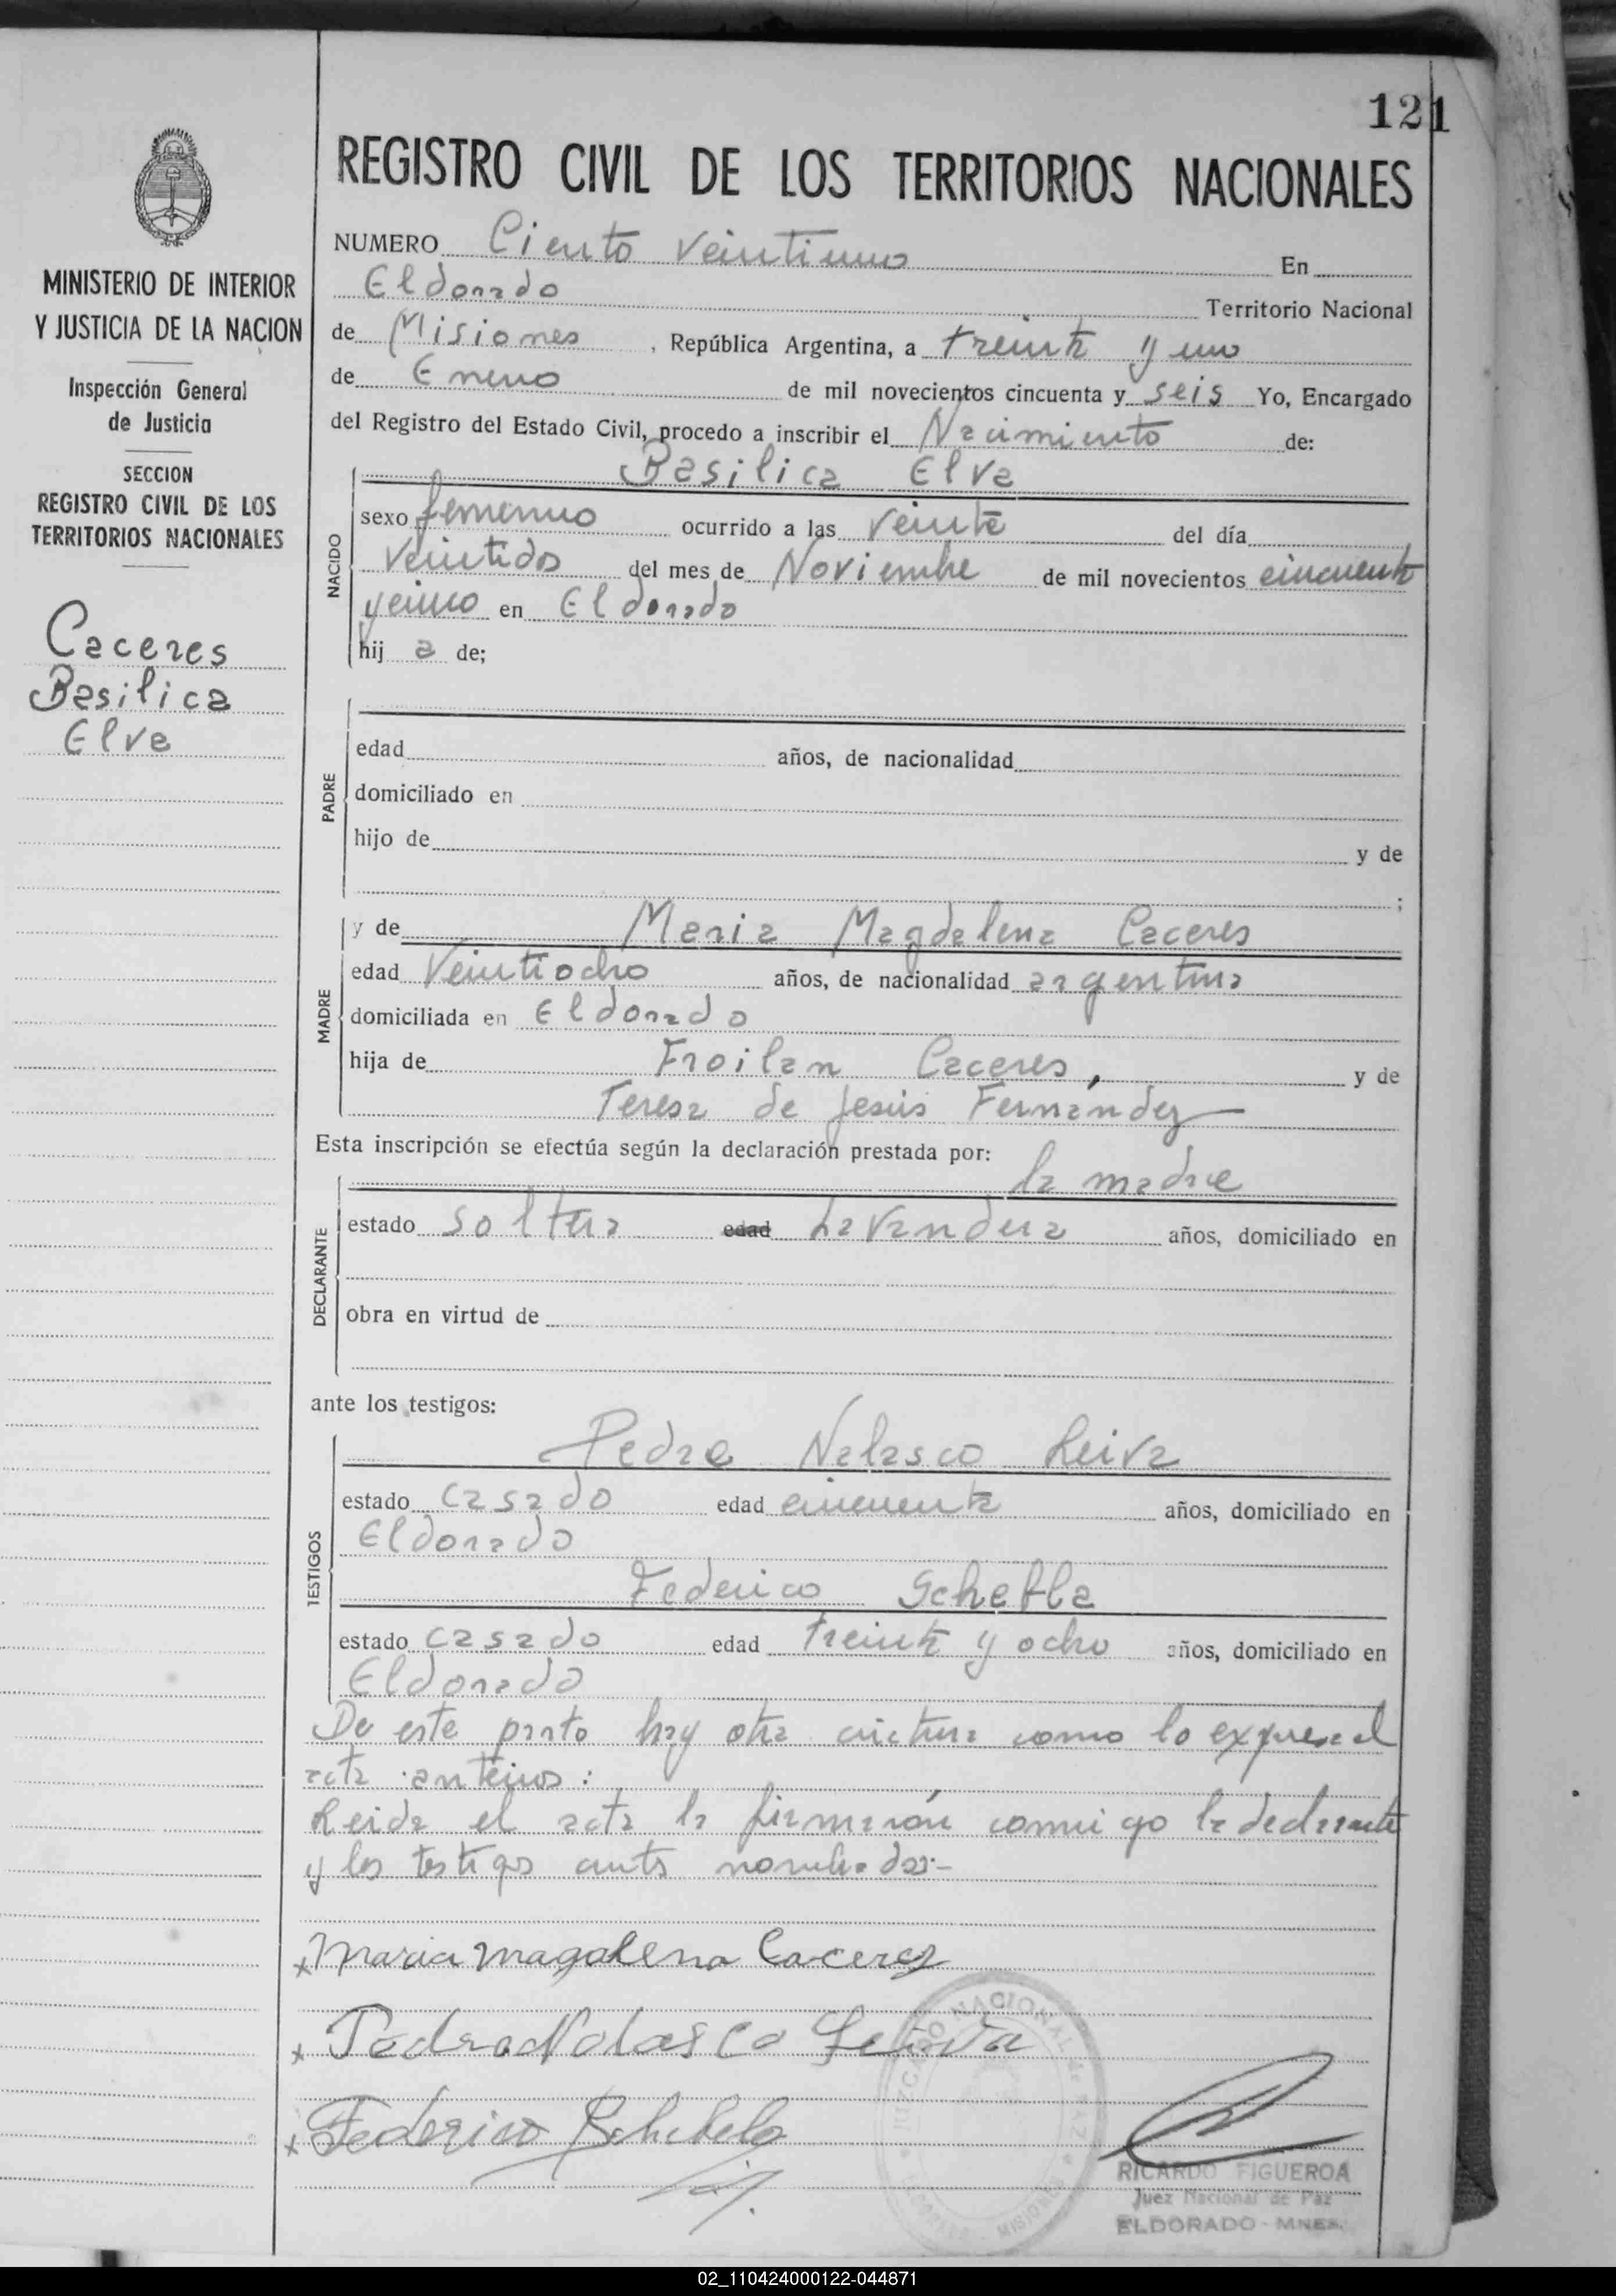 121
REGISTRO CIVIL DE LOS TERRITORIOS NACIONALES
MINISTERIO DE INTERIOR
Y JUSTICIA DE LA NACION
Inspección General
de Justicia
SECCION
REGISTRO CIVIL DE LOS
TERRITORIOS NACIONALES
Caceres
Basilica
Elva
NUMERO Ciento veintiuno En
Eldorado Territorio Nacional
de Misiones, República Argentina, a treinta y uno
de Enero de mil novecientos cincuenta y seis Yo, Encargado
del Registro del Estado Civil, procedo a inscribir el Nacimiento de:
Basilica Elva
NACIDO
sexo femenino ocurrido a las veinte del día
veintidos del mes de Noviembre de mil novecientos cincuenta
en Eldorado
hij a de;
PADRE
edad años, de nacionalidad
domiciliado en
hijo de y de
;
MADRE
y de Maria Magdalena Caceres
edad Veintiocho años, de nacionalidad argentina
domiciliada en Eldorado
hija de Froilan Caceres, y de
Teresa de Jesús Fernández
Esta inscripción se efectúa según la declaración prestada por:
la madre
DECLARANTE
estado soltera edad Lavandera años, domiciliado en
obra en virtud de
ante los testigos:
TESTIGOS
Pedro Nolasco Leiva
estado casado edad cincuenta años, domiciliado en
Eldorado
Federico
estado casado edad treinta y ocho años, domiciliado en
Eldorado
De este parto hay otra criatura como lo expresa el
acta anterior:
Leida el acta la firmaron conmigo la declarante
y los testigos antes nombrados:-
x Maria Magdalena Cacerez
x Pedro Nolasco Leiva
x Federico
JUZGADO NACIONAL DE PAZ
ELDORADO - MISIONES
RICARDO FIGUEROA
Juez Nacional de Paz
ELDORADO - MNES.
02_110424000122-044871